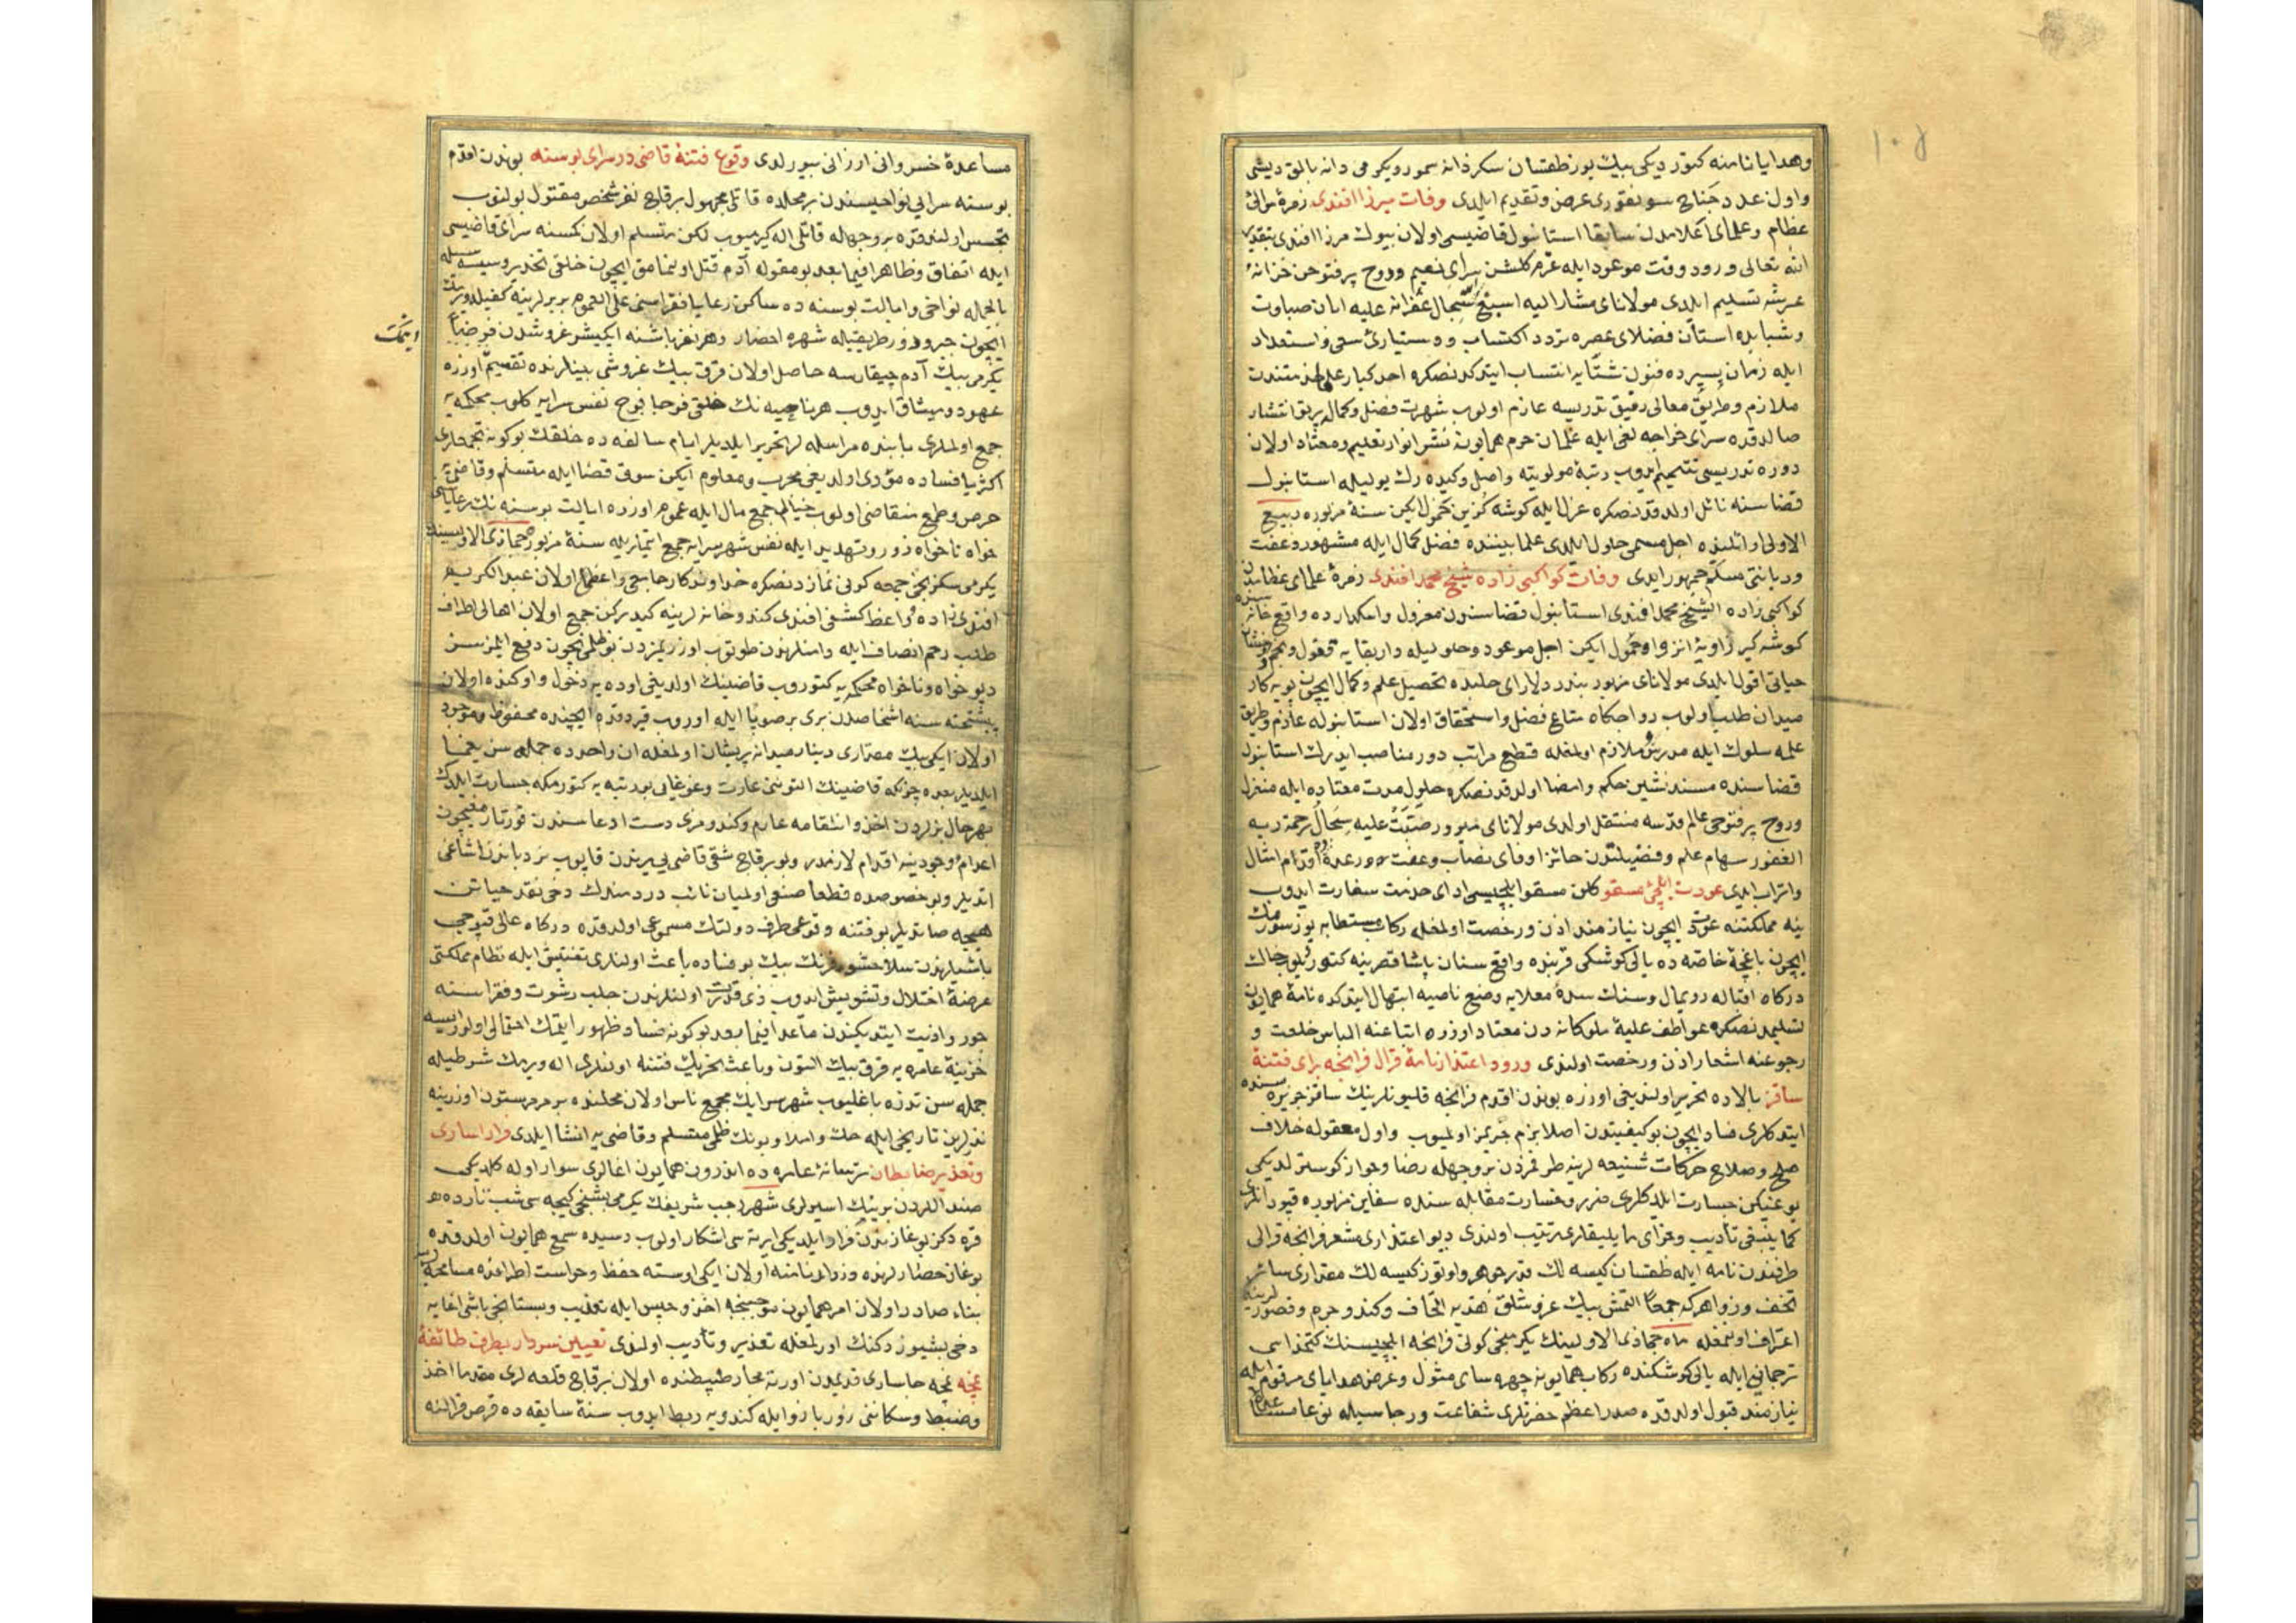 ١٠٨
وهدايا نامنه كتورديكى بيك يوز طقسان سكز دانه سمور ويكرمى دانه بالق ديشى
واون عدد جناح سونقورى عرض وتقديم ايلدى وفات ميرزا افندى زمرۀ موالئ
عظام وعلماى اعلامدن سابقا استانبول قاضيسى اولان بيوك مرزا افندى بتقدير
الله تعالى ورود وقت موعود ايله عزم كلشن سراى نعيم وروح پرفتوحن خزانۀ
عرشه تسليم ايلدى مولاناى مشار اليه اسبغ سجال غفرانه عليه ابان صباوت
وشبابده استان فضلاى عصره تردد اكتساب ودستيارئ سعى واستعداد
ايله زمان يسيرده فنون شتايه انتساب ايتدكدنصكره احد كبار علمادن متندت
ملازم وطريق معالى رفيق تدريسه عازم اولوب شهرت فضل وكمالى پرتو انتشار
صالدقده سراى خواجه لغى ايله غلمان حرم همايونه نشر انوار تعليم ومعتاد اولان
دوره تدريسى تتميم ايدوب رتبۀ مولويته واصل وكيده رك يوليله استانبول
قضاسنه نائل اولدقدنصكره عزل ايله كوشه كزين خمول ايكن سنۀ مزبوره ربيع
الاولى اوائلنده اجل مسمى حلول ايلدى علما بيننده فضل كمال ايله مشهور وعفت
وديانتى مسلم جمهور ايدى وفات كواكبى زاده شيخ محمد افندى زمرۀ علماى عظامدن
كواكبى زاده الشيخ محمد افندى استانبول قضاسندن معزول واسكدارده واقع خانه سنده
كوشه كير زاويۀ انزوا وخمول ايكن اجل موعود وحلوليله داربقايه قفول ونجم رخشان
حياتى افول ايلدى مولاناى مزبور بندر دلاراى حلبده تحصيل علم وكمال ايچون پويه كار
ميدان طلب اولوب رواجكاه متاع فضل واستحقاق اولان استانبوله عازم وطريق
علمه سلوك ايله مدرس وملازم اولمغله قطع مراتب دور مناصب ايدرك استانبول
قضاسنده مسندنشين حكم وامضا اولدقدنصكره حلول مدت معتاده ايله منعزل
وروح پرفتوحى عالم قدسه منتقل اولدى مولاناى مزبور صبت عليه سجال رحمة ربه
الغفور سهام علم وفضيلتدن حائز اوفاى نصاب وعفت اقدام امثال
واتراب ايدى عودت ايلچئ مسقو كلن مسقو ايلچيسى اداى خدمت سفارت ايدوب
ينه مملكتنه عودت ايچون نيازمند اذن ورخصت اولمغله ركاب مستطابه يوز سورمك
ايچون باغچۀ خاصه ده يالى كوشكى قربنده واقع سنان پاشا قصرينه كتوريلوب خاك
دركاه اقباله رويمال وسنك سدۀ معلايه وضع ناصيه ابتهال ايتدكده نامۀ همايون
تسليمدنصكره عواطف عليۀ ملوكانه دن معتاد اوزره اتباعنه الباس خلعت و
رجوعنه اشعار اذن ورخصت اولندى ورود اعتذار نامۀ قرال فرانچه براى فتنۀ
ساقز بالاده تحرير اولنديغى اوزره بوندن اقدم فرانچه قليونلرينك ساقز جزيره سنده
ايتدكلرى فساد ايچون بو كيفيتدن اصلا بزم خبريمز اولميوب واول مقوله خلاف
صلح وصلاح حركات شنيعه لرينه طرفمزدن بر وجهله رضا وجواز كوسترلديكى
يوغيكن جسارت ايلدكلرى ضرر وخسارت مقابله سنده سفاين مزبوره قپودانلرى
كما ينبغى تأديب وجزاى مايليقلرى ترتيب اولندى ديو اعتذارى مشعر فرانچه قرالى
طرفندن نامه ايله طقسان كيسه لك قدر جواهر واوتوز كيسه لك مقدارى سائر
تحف وزواهر كه جمعاً التمش بيك غروشلق هديه اتحاف وكندو جرم وقصورلرينه
اعتراف اولنمغله ماه جماذى الاولينك يكرمنجى كونى فرانچه ايلچيسنك كتخداسى
ترجمانى ايله يالى كوشكنده ركاب همايونه چهره ساى مثول وعرض هداياى مرقوم ايله
نيازمند قبول اولدقده صدر اعظم حضرتلرى شفاعت ورجاسيله
مساعدۀ خسروانى ارزانى بيورلدى وقوع فتنۀ قاضى در سراى بوسنه بوندن اقدم
بوسنه سرايى نواحيسندن بر محلده قاتلى مجهول برقاچ نفر شخص مقتول بولنوب
تجسس اولندقده بر وجهله قاتلى اله كيرميوب لكن متسلم اولان كمسنه سراى قاضيسى
ايله اتفاق وظاهرا فيما بعد بو مقوله آدم قتل اولنمامق ايچون خلقى تحذير وسيله سيله
بالجمله نواحى وايالت بوسنه ده ساكن رعايا فقراسنى على العموم بربرلرينه كفيل ويرمك
ايچون جبر وزور طريقيله شهره احضار وهر نفر باشنه ايكيشر غروشدن فرضاً ايتمك
يكرمى بيك آدم چيقارسه حاصل اولان قرق بيك غروشى بينلرنده تقسيم اوزره
عهود وميثاق ايدوب هر ناحيه نك خلقى فوجا فوج نفس سرايه كلوب محكمه يه
جمع اولملرى بابنده مراسله لر تحرير ايلديلر ايام سالفه ده خلقك بوكونه تجمعلرى
اكثريا فساده مؤدى اولديغى مجرب ومعلوم ايكن سوق قضا ايله متسلم وقاضى يه
حرص وطمع متقاضى اولوب خيالم جمع مال ايله عموم اوزره ايالت بوسنه نك رعاياسى
خواه ناخواه زور وتهديد ايله نفس شهر سرايه جمع ايتديلر سنۀ مزبوره جماذى الاولينك
يكرمى سكزنجى جمعه كونى نمازدنصكره خداوندكار جامعى واعظى اولان عبد الكريم
افندى زاده واعظ كشفى افندى كندو خانه لرينه كيدركن جمع اولان اهالى اطراف
طلب رحم انصاف ايله دامنلرندن طوتوب اوزريمزدن بو ظلمى نيچون دفع ايلمزسن
ديو خواه وناخواه محكمه يه كتوروب قاضينك اولديغى اوده يه دخول واوكنده اولان
پيشتخته سنه اشخاصدن برى بر صوپا ايله اوروب قيردقده ايچنده محفوظ وموجود
اولان ايكى بيك مقدارى دينار ميدانه پريشان اولمغله ان واحدده جمله سن يغما
ايلديلر بعده چونكه قاضينك التونى غارت وغوغايى بو رتبه يه كتورمكه جسارت ايلدك
بهر حال بزلردن اخذ وانتقامه عازم وكندومزى دست ادعاسندن قورتارمغيچون
اعدام وجودينه اقدام لازمدر ديو برقاچ شقى قاضى يى يرندن قاپوب نردباندن اشاغى
اتديلر وبو خصوصده قطعا صنعى اولميان نائب دردمندك دخى نقد حياتن
هيچه صاتديلر بو فتنه وقوعى طرف دولتك مسموعى اولدقده دركاه عالى قپوجى
باشيلرندن سلاحشور فرنك بيك بو فساده باعث اولنلرى تفتيش ايله نظام مملكتى
عرضۀ اختلال وتشويش ايدوب ذى قدرت اولنلرندن جلب رشوت وفقراسنه
جور واذيت ايتديكندن ماعدا فيما بعد بوكونه فساد ظهور ايتمك احتمالى اولورايسه
خزينۀ عامره يه قرق بيك التون وباعث تحريك فتنه اولنلرى اله ويرمك شرطيله
جمله سن نذره باغليوب شهر سرايك مجمع ناس اولان محلنده بر مرمر ستون اوزرينه
نذرلرين تاريخى ايله حك واملا وبونك ظلمى متسلم وقاضى يه انشا ايلدى فرار اسارى
وتعذير ضابطان ترسانۀ عامره ده اندرون همايون اغالرى سوار اوله كلديكى
صنداللردن برينك اسيرلرى شهر رجب شريفك يكرمى بشنجى كيجه سى شب تارده
قره دكز بوغازندن فرار ايلديكى ايرته سى اشكار اولوب رسيده سمع همايون اولدقده
بوغاز حصارلرنده وزداللرنامنه اولان ايكى اوسته حفظ وحراست اطرافده مسامحه لرينه
بناء صادر اولان امر همايون موجبنجه اخذ وحبس ايله تعذيب وبستانجى باشى اغايه
دخى بشيوز دكنك اورلمغله تعذير وتأديب اولندى تعيين سردار بطرف طائفۀ
غجه غجه جاسارى قديمدن اورته مجار ضبطنده اولان برقاچ قلعه لرى مقدما اخذ
وضبط وسكانى زور بازو ايله كندويه ربط ايدوب سنۀ سابقه ده قرص قرالنه